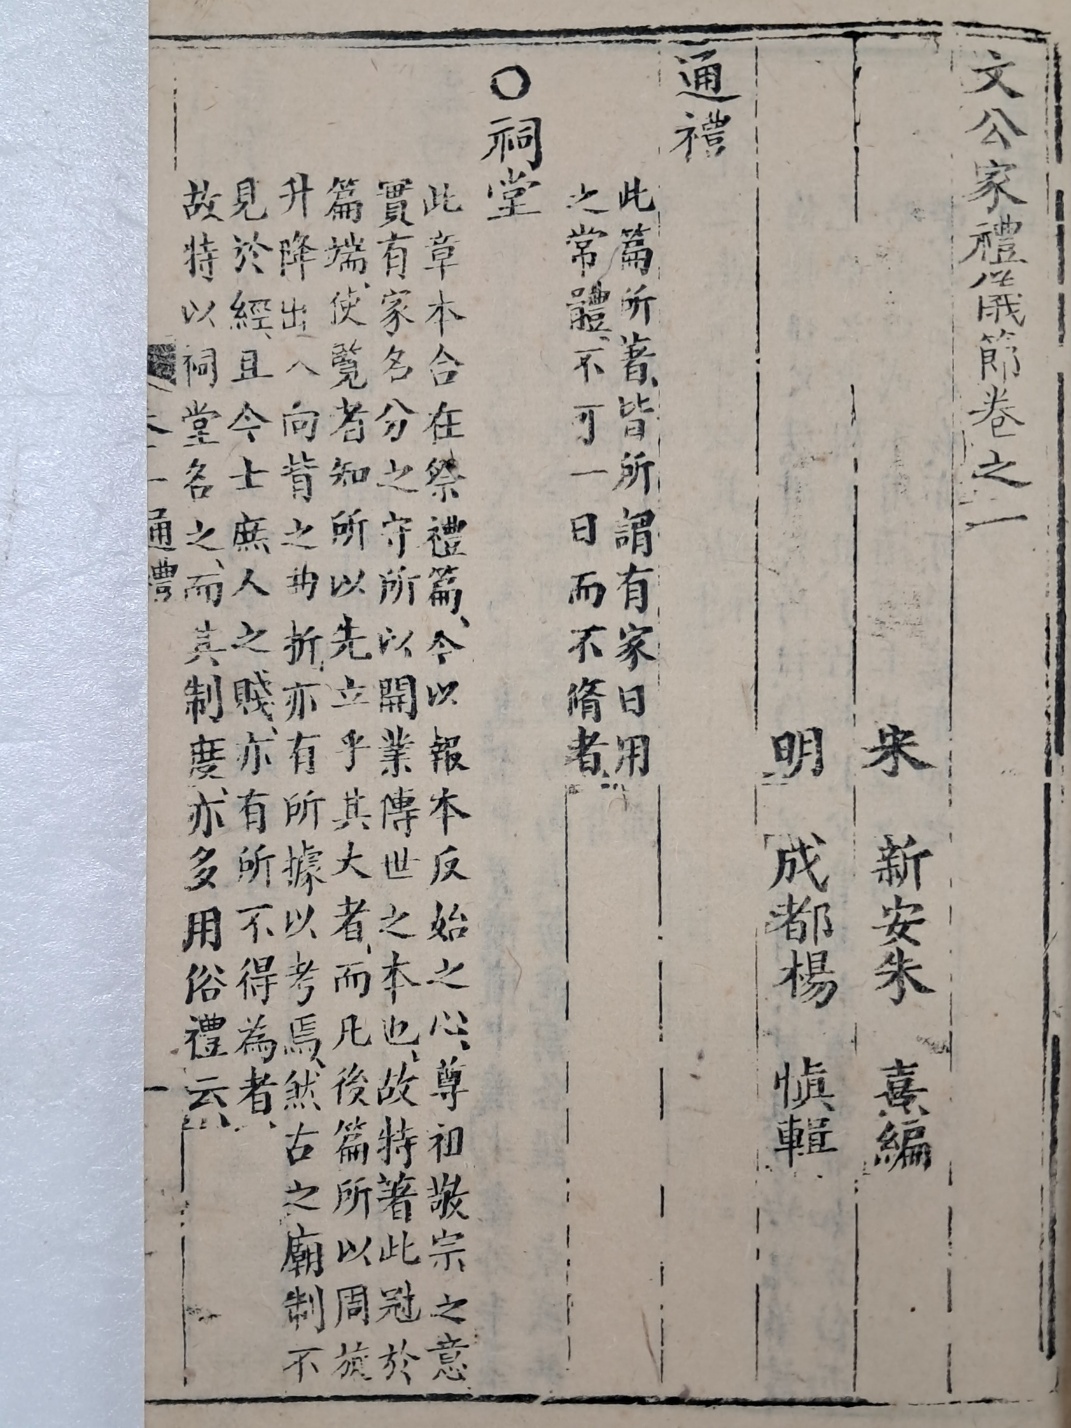 文公家禮儀節卷之一
宋 新安朱 熹編
明 成都楊 慎輯
通禮
此篇所著皆所謂有家日用
之常體不可一日而不脩者
○祠堂
此章本合在祭禮篇、今以報本反始之心、尊祖敬宗之意
實有家名分之守所以開業傳世之本也、故特著此冠於
篇端、使覽者知所以先立乎其大者、而凡後篇所以周旋
升降出入向背之曲折亦有所據以考焉、然古之廟制不
見於經、且今士庶人之賤、亦有所不得為者、
故特以祠堂名之、而其制度、亦多用俗禮云、
通禮
一